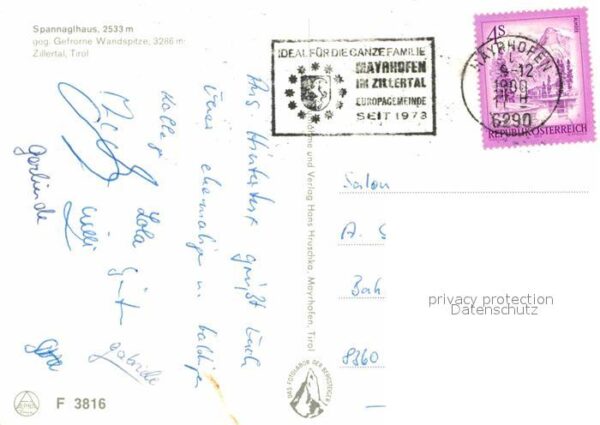 Spannaglhaus, 2533 m
geg. Gefrorne Wandspitze, 3286 m
Zillertal, Tirol
IDEAL FÜR DIE GANZE FAMILIE
MAYRHOFEN
IM ZILLERTAL
EUROPAGEMEINDE
SEIT 1973
MAYRHOFEN
6290
4S
REPUBLIK ÖSTERREICH
Aus Hintertux grüßt Euch
Eure ehemalige u. baldige
Kollegi
Lola
Willi
Gerlinde
Gabriele
und Verlag Hans Hruschka, Mayrhofen, Tirol
Salon
A. S
Bah
8360
privacy protection
Datenschutz
DAS FOTOLABOR DER BERGSTEIGER
F 3816